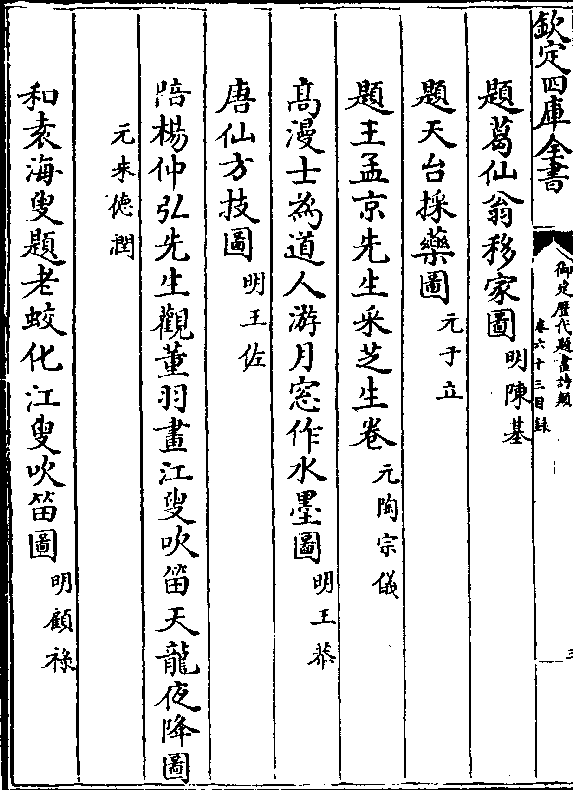 欽定四庫全書
御定歷代題畫詩類
卷六十三目録
三
題葛仙翁移家圖 明陳基
題天台採藥圖 元于立
題王孟京先生采芝生卷 元陶宗儀
髙漫士為道人游月窓作水墨圖 明王恭
唐仙方技圖 明王佐
陪楊仲弘先生觀董羽畫江叟吹笛天龍夜降圖
元朱徳潤
和袁海叟題老蛟化江叟吹笛圖 明顧祿